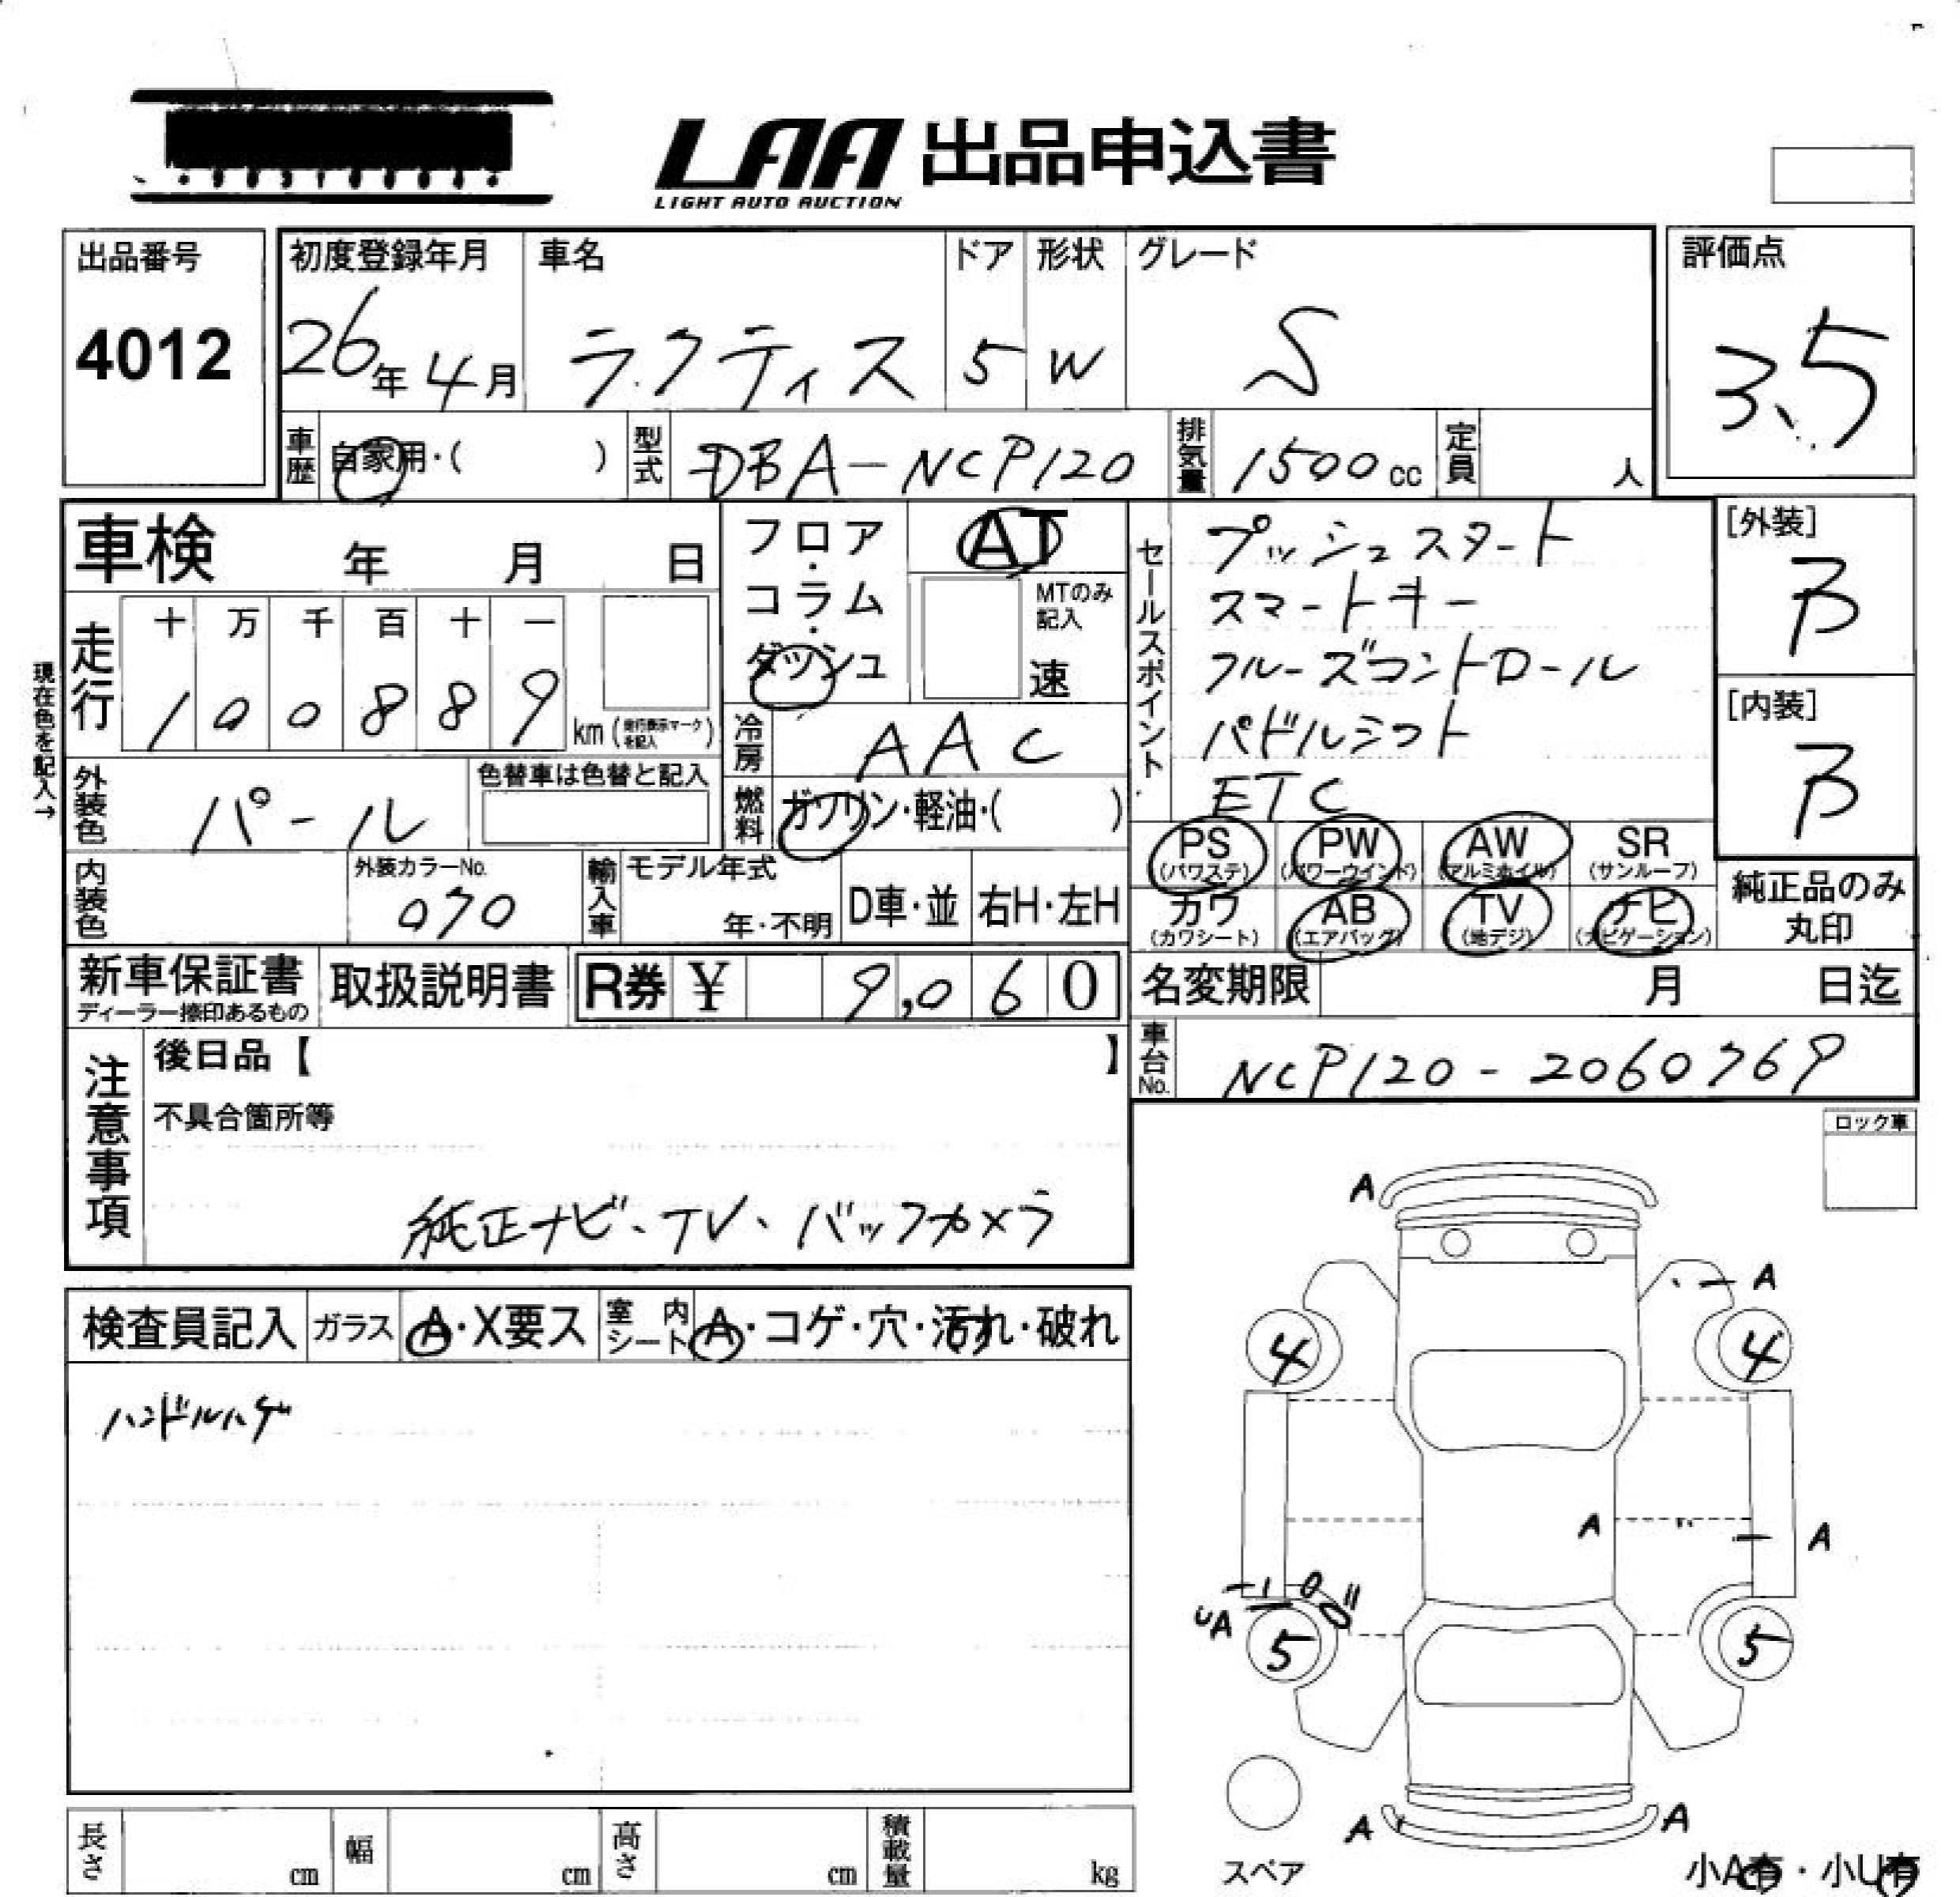 LAA 出品申込書
LIGHT AUTO AUCTION
出品番号
4012
初度登録年月
26年4月
車名
ラクティス
ドア
5
形状
W
グレード
S
評価点
3.5
車歴
自家用・( )
型式
DBA-NCP120
排気量
1500cc
定員
人
車検 年 月 日
フロア・コラム・ダッシュ
AT
MTのみ記入
速
セールスポイント
プッシュスタート
スマートキー
クルーズコントロール
パドルシフト
ETC
[外装]
B
[内装]
B
現在色を記入→
走行
十 万 千 百 十 一
1 0 0 8 8 9 km (走行表示マークを記入)
冷房
AAC
外装色
パール
色替車は色替と記入
燃料
ガソリン・軽油・( )
PS (パワステ)
PW (パワーウインド)
AW (アルミホイル)
SR (サンルーフ)
カワ (カワシート)
AB (エアバッグ)
TV (地デジ)
ナビ (ナビゲーション)
純正品のみ丸印
内装色
外装カラーNo.
070
輸入車
モデル年式
年・不明
D車・並
右H・左H
新車保証書
ディーラー捺印あるもの
取扱説明書
R券 ¥ 9,060
名変期限 月 日迄
車台No.
NCP120-2060769
注意事項
後日品【 】
不具合箇所等
純正ナビ、TV、バックカメラ
ロック車
検査員記入
ガラス
A・X要ス
室内シート
A・コゲ・穴・汚れ・破れ
ハンドルハゲ
A
A
4
4
A
A
UA
5
5
A
A
スペア
小A有・小U有
長さ cm
幅 cm
高さ cm
積載量 kg